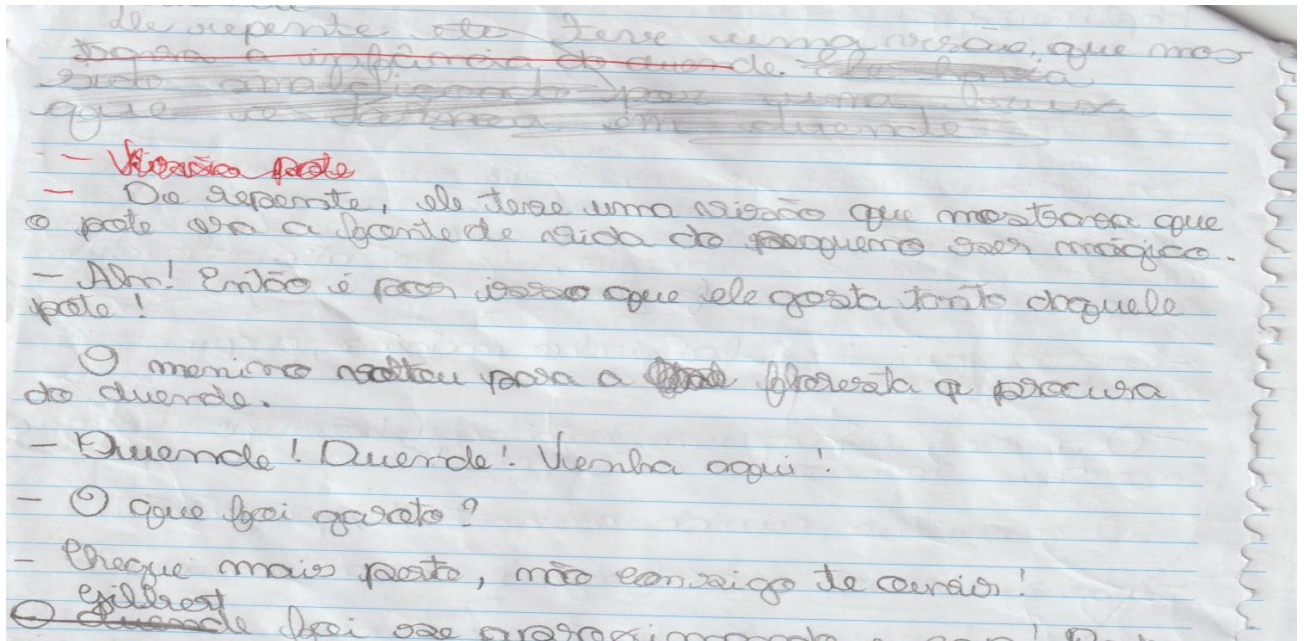 De repente ele teve uma visão, que mos
trava a infância do duende. Ele havia
sido amaldiçoado por uma bruxa
que o tornou em duende
- Versão pote
- De repente, ele teve uma visão que mostrava que
o pote era a fonte de vida do pequeno ser mágico.
- Ahn! Então é por isso que ele gosta tanto daquele
pote!
O menino voltou para a floresta a procura
do duende.
- Duende! Duende! Venha aqui!
- O que foi garoto?
- Chegue mais perto, não consigo te ouvir!
Gilbert
O duende foi se aproximando e